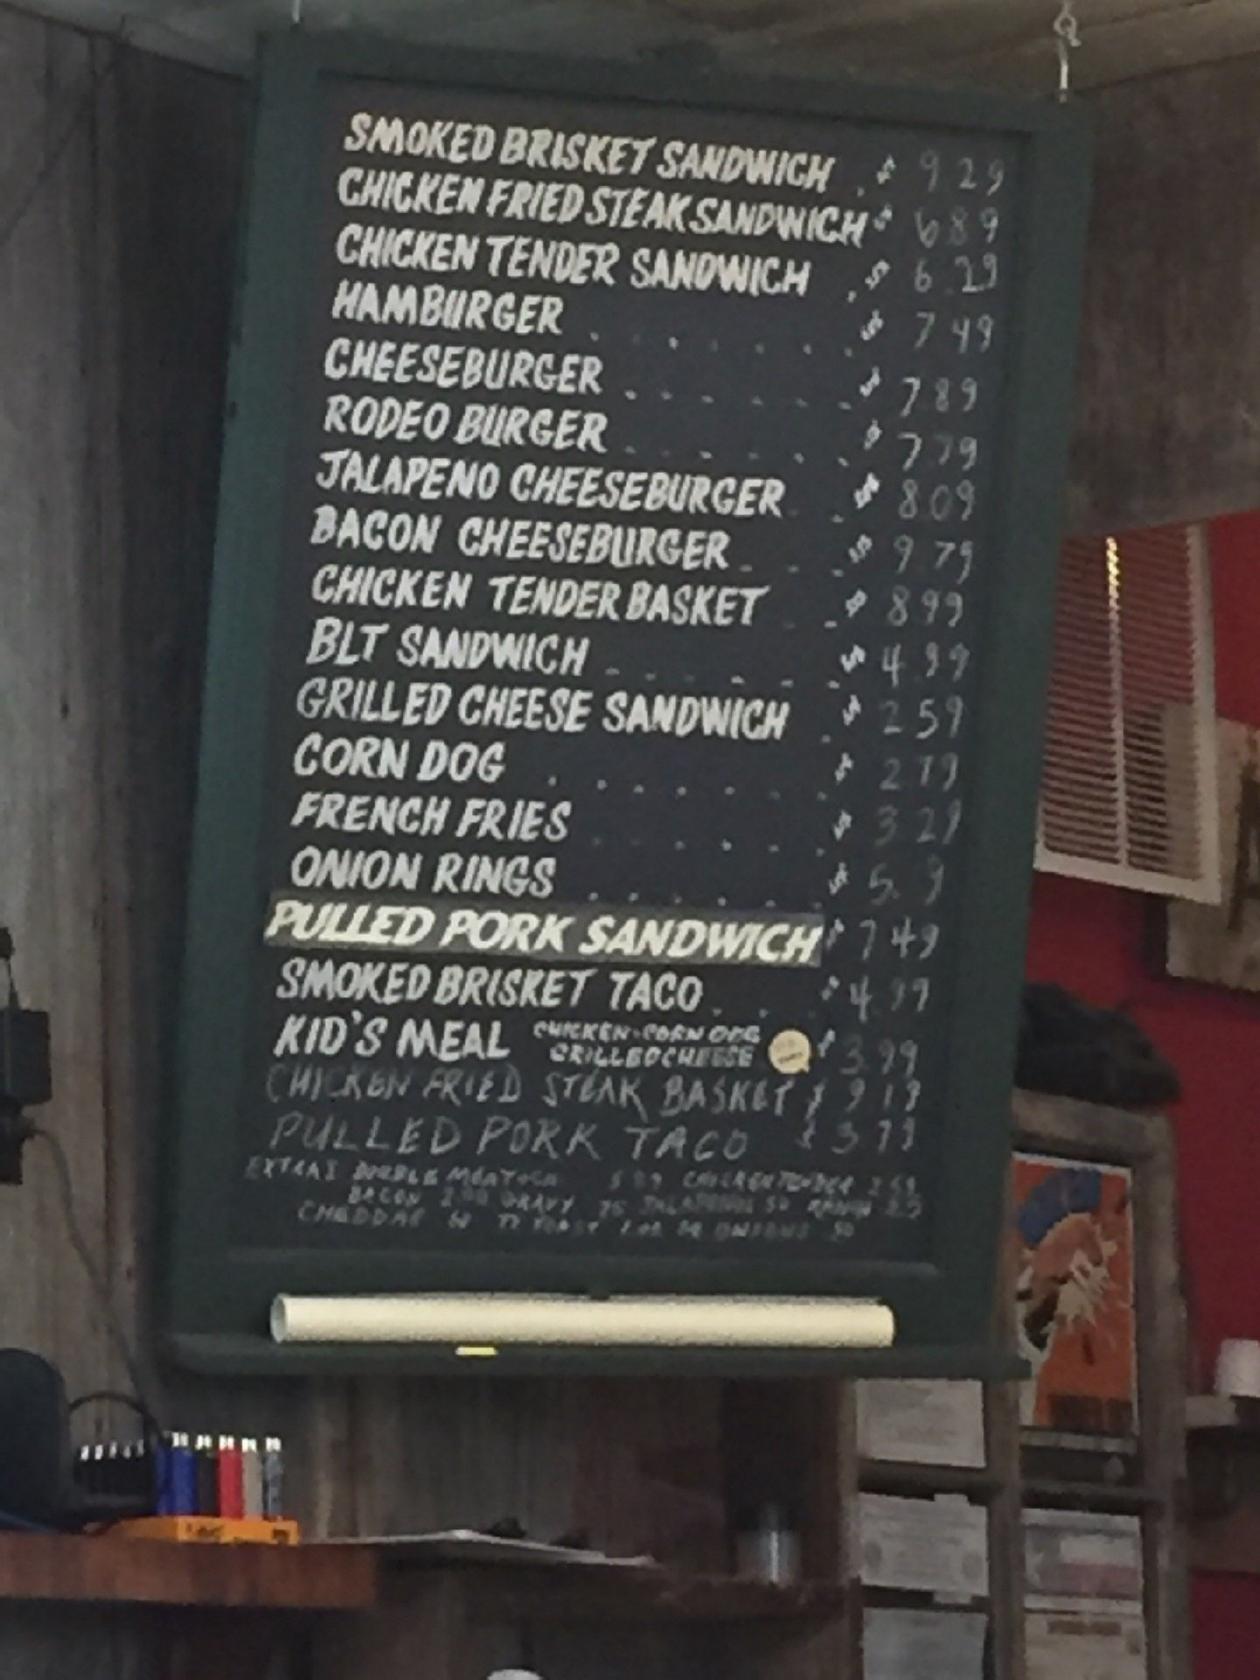 SMOKED BRISKET SANDWICH . $ 9.29
CHICKEN FRIED STEAK SANDWICH $ 6 89
CHICKEN TENDER SANDWICH . $ 6.29
HAMBURGER . . . . . . $ 7 49
CHEESEBURGER . . . . . . $ 7 89
RODEO BURGER . . . . . . $ 7 79
JALAPENO CHEESEBURGER . . $ 8 09
BACON CHEESEBURGER . . . $ 9 79
CHICKEN TENDER BASKET . . $ 8 99
BLT SANDWICH . . . . . . $ 4 99
GRILLED CHEESE SANDWICH . $ 2 59
CORN DOG . . . . . . . $ 2 79
FRENCH FRIES . . . . . . $ 3 29
ONION RINGS . . . . . . $ 5. 9
PULLED PORK SANDWICH $ 7 49
SMOKED BRISKET TACO . . . $ 4.99
KID'S MEAL CHICKEN·CORN DOG $ 3.99
GRILLED CHEESE
CHICKEN FRIED STEAK BASKET $ 9 19
PULLED PORK TACO $ 3 79
EXTRAS DOUBLE MEAT CHICKEN TENDER
BACON GRAVY 75 JALAPENOS 50
CHEDDAR TOAST ONIONS 50